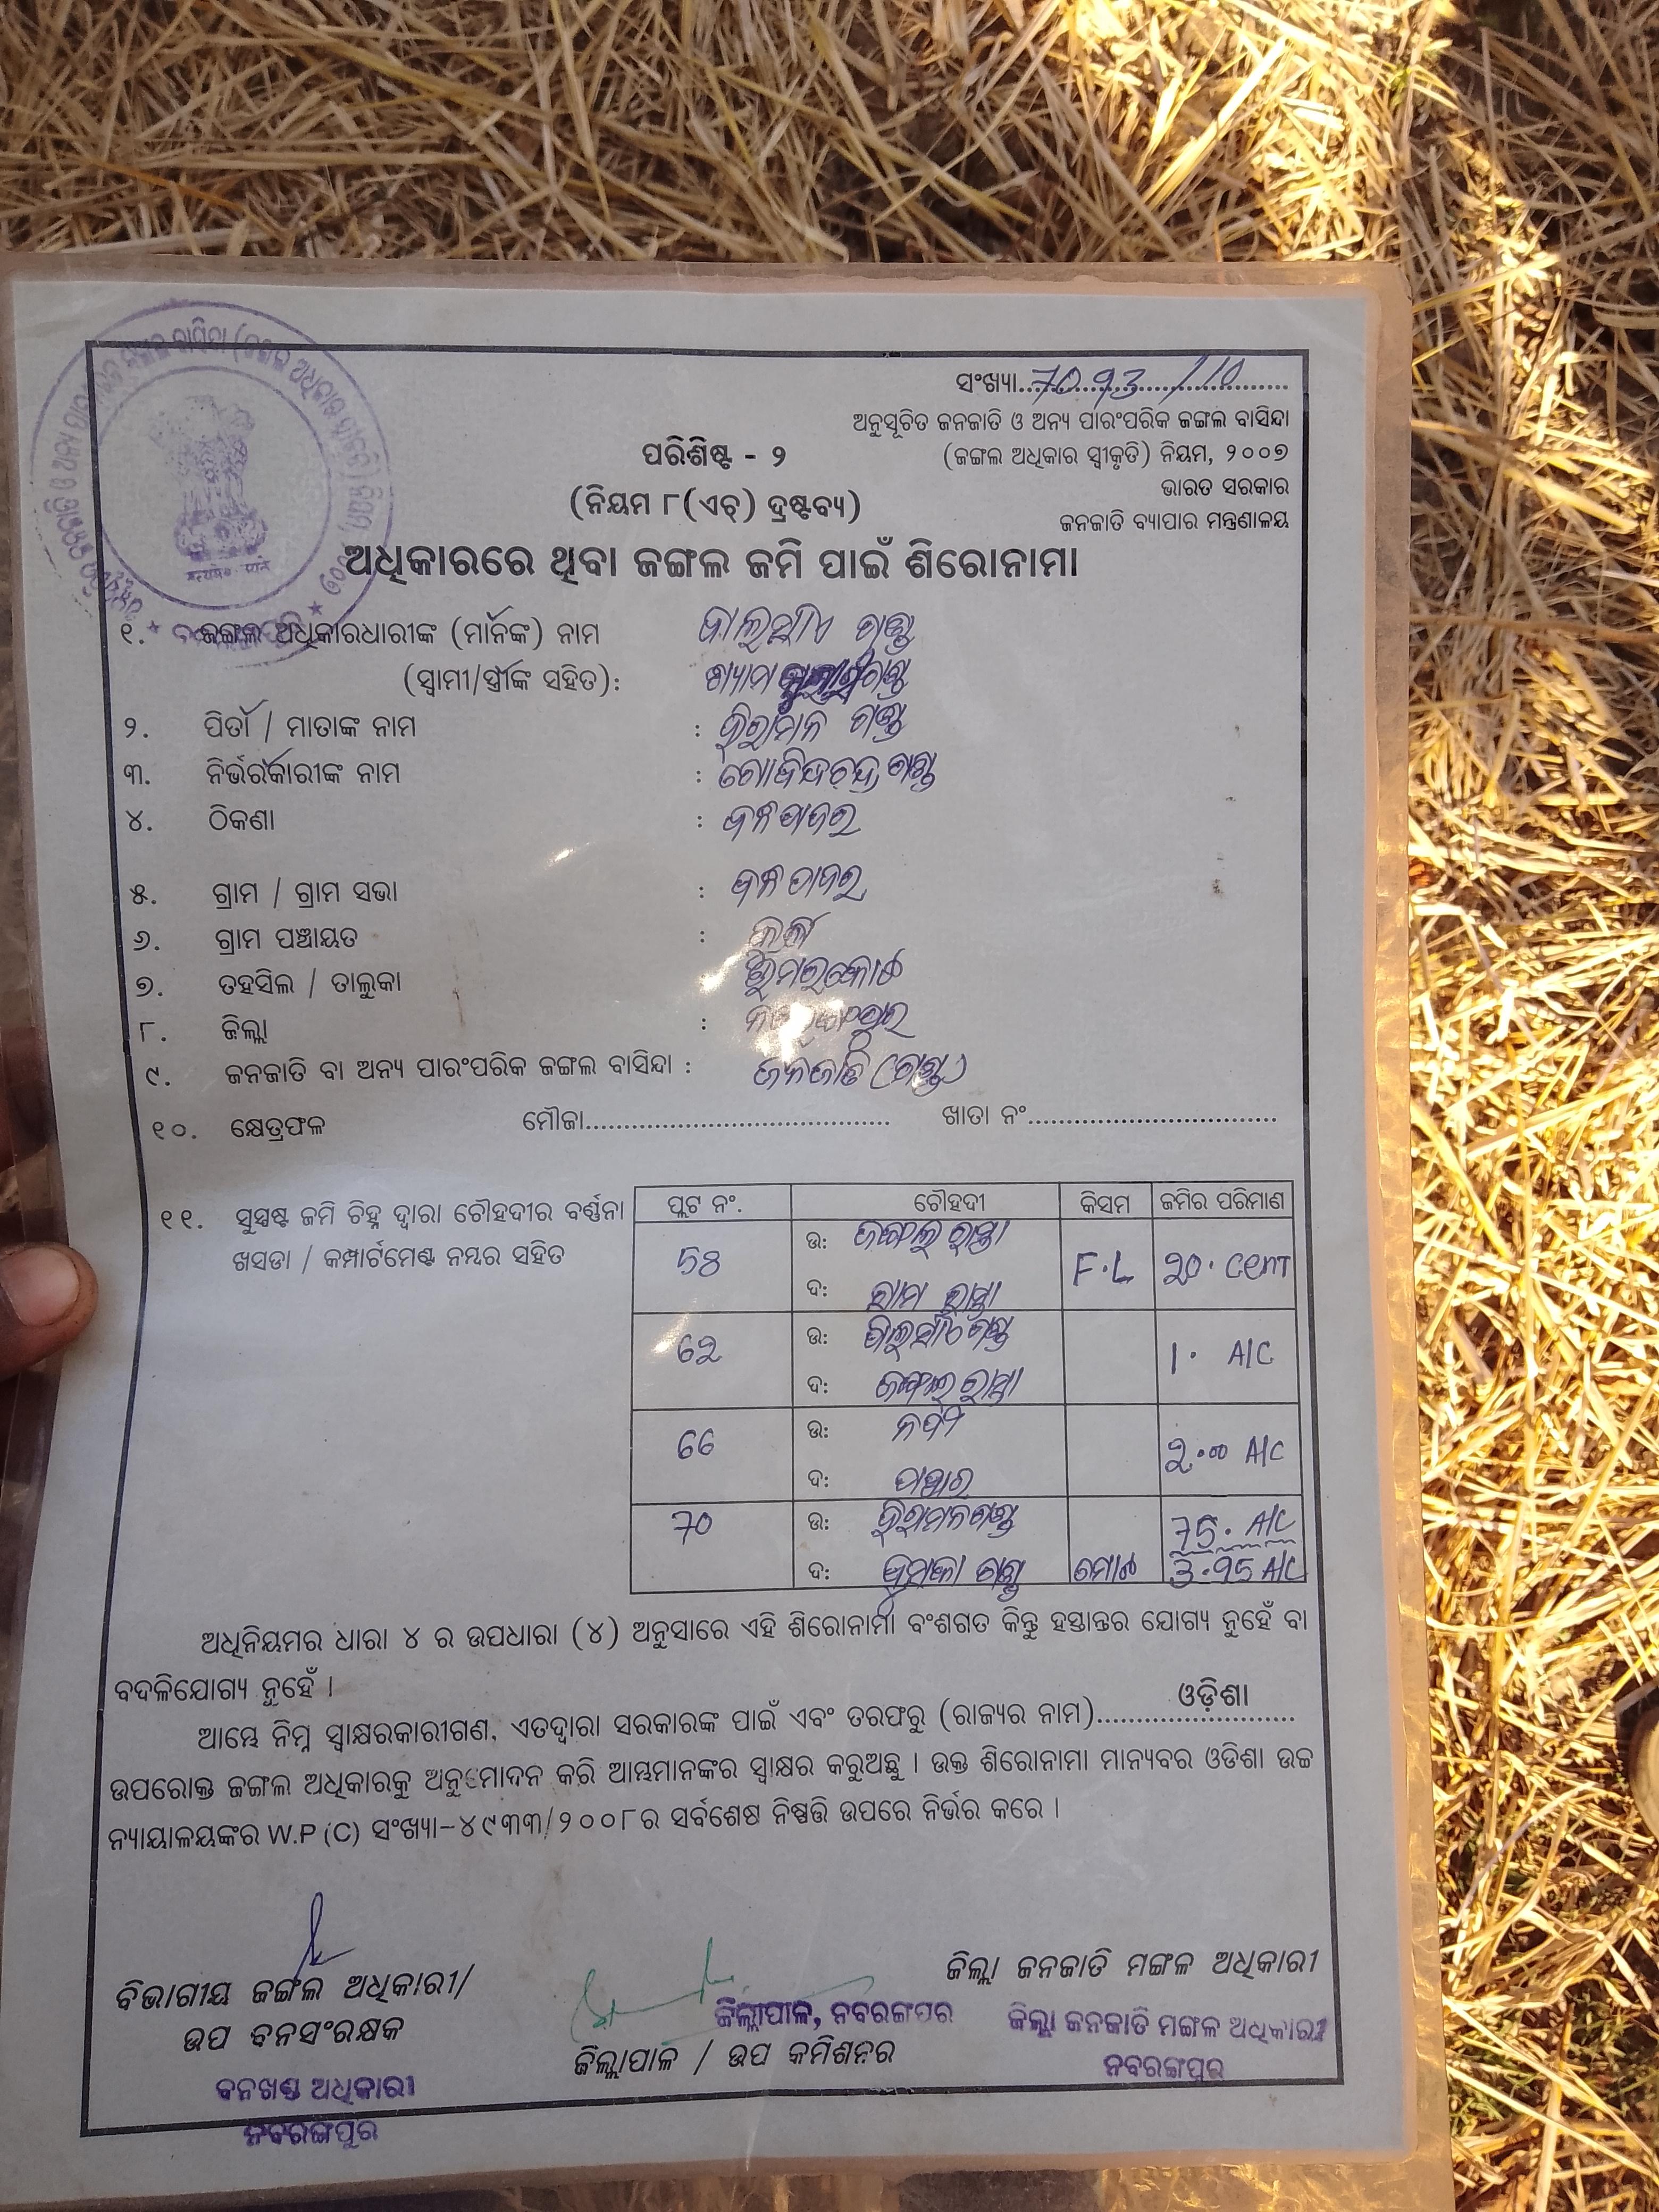 ସଂଖ୍ୟା...7093/10
ଅନୁସୂଚିତ ଜନଜାତି ଓ ଅନ୍ୟ ପାରଂପରିକ ଜଙ୍ଗଲ ବାସିନ୍ଦା
(ଜଙ୍ଗଲ ଅଧିକାର ସ୍ୱୀକୃତି) ନିୟମ, ୨୦୦୭
ଭାରତ ସରକାର
ଜନଜାତି ବ୍ୟାପାର ମନ୍ତ୍ରଣାଳୟ
ପରିଶିଷ୍ଟ - ୨
(ନିୟମ ୮(ଏଚ୍) ଦ୍ରଷ୍ଟବ୍ୟ)
ଅଧିକାରରେ ଥିବା ଜଙ୍ଗଲ ଜମି ପାଇଁ ଶିରୋନାମା
୧. ଜଙ୍ଗଲ ଅଧିକାରଧାରୀଙ୍କ (ମାନଙ୍କ) ନାମ ଗଣ୍ଡ
(ସ୍ୱାମୀ/ସ୍ତ୍ରୀଙ୍କ ସହିତ): ଗଣ୍ଡ
୨. ପିତା / ମାତାଙ୍କ ନାମ : ହିରାମନ ଗଣ୍ଡ
୩. ନିର୍ଭରକାରୀଙ୍କ ନାମ : ଗୋବିନ୍ଦଚନ୍ଦ୍ର ଗଣ୍ଡ
୪. ଠିକଣା :
୫. ଗ୍ରାମ / ଗ୍ରାମ ସଭା :
୬. ଗ୍ରାମ ପଞ୍ଚାୟତ :
୭. ତହସିଲ / ତାଲୁକା ଝୁମରକୋଟ
୮. ଜିଲ୍ଲା : ନବରଙ୍ଗପୁର
୯. ଜନଜାତି ବା ଅନ୍ୟ ପାରଂପରିକ ଜଙ୍ଗଲ ବାସିନ୍ଦା : ଜନଜାତି (ଗଣ୍ଡ)
୧୦. କ୍ଷେତ୍ରଫଳ ମୌଜା........................................ ଖାତା ନଂ................................
୧୧. ସୁସ୍ପଷ୍ଟ ଜମି ଚିହ୍ନ ଦ୍ୱାରା ଚୌହଦୀର ବର୍ଣ୍ଣନା
ଖସଡା / କମ୍ପାର୍ଟମେଣ୍ଟ ନମ୍ବର ସହିତ
ପ୍ଲଟ ନଂ. ଚୌହଦୀ କିସମ ଜମିର ପରିମାଣ
58 ଉ: ଜଙ୍ଗଲ ରାସ୍ତା F.L ୨0. Cent
ଦ: ଗ୍ରାମ ରାସ୍ତା
6୨ ଉ: ଗଣ୍ଡ 1. A/C
ଦ: ଜଙ୍ଗଲ ରାସ୍ତା
66 ଉ: ୨.00 A/C
ଦ: ପାହାର
70 ଉ: ହିରାମନ ଗଣ୍ଡ 75. A/C
ଦ: ଗଣ୍ଡ ମୋଟ 3.95 A/C
ଅଧିନିୟମର ଧାରା ୪ ର ଉପଧାରା (୪) ଅନୁସାରେ ଏହି ଶିରୋନାମା ବଂଶଗତ କିନ୍ତୁ ହସ୍ତାନ୍ତର ଯୋଗ୍ୟ ନୁହେଁ ବା
ବଦଳିଯୋଗ୍ୟ ନୁହେଁ ।
ଆମ୍ଭେ ନିମ୍ନ ସ୍ୱାକ୍ଷରକାରୀଗଣ, ଏତଦ୍ୱାରା ସରକାରଙ୍କ ପାଇଁ ଏବଂ ତରଫରୁ (ରାଜ୍ୟର ନାମ)......ଓଡ଼ିଶା......
ଉପରୋକ୍ତ ଜଙ୍ଗଲ ଅଧିକାରକୁ ଅନୁମୋଦନ କରି ଆମ୍ଭମାନଙ୍କର ସ୍ୱାକ୍ଷର କରୁଅଛୁ । ଉକ୍ତ ଶିରୋନାମା ମାନ୍ୟବର ଓଡିଶା ଉଚ୍ଚ
ନ୍ୟାୟାଳୟଙ୍କର W.P (C) ସଂଖ୍ୟା-୪୯୩୩/୨୦୦୮ର ସର୍ବଶେଷ ନିଷ୍ପତ୍ତି ଉପରେ ନିର୍ଭର କରେ ।
ବିଭାଗୀୟ ଜଙ୍ଗଲ ଅଧିକାରୀ/
ଉପ ବନସଂରକ୍ଷକ
ବନଖଣ୍ଡ ଅଧିକାରୀ
ନବରଙ୍ଗପୁର
ଜିଲ୍ଲାପାଳ, ନବରଙ୍ଗପୁର
ଜିଲ୍ଲାପାଳ / ଉପ କମିଶନର
ଜିଲ୍ଲା ଜନଜାତି ମଙ୍ଗଳ ଅଧିକାରୀ
ଜିଲ୍ଲା ଜନଜାତି ମଙ୍ଗଳ ଅଧିକାରୀ
ନବରଙ୍ଗପୁର